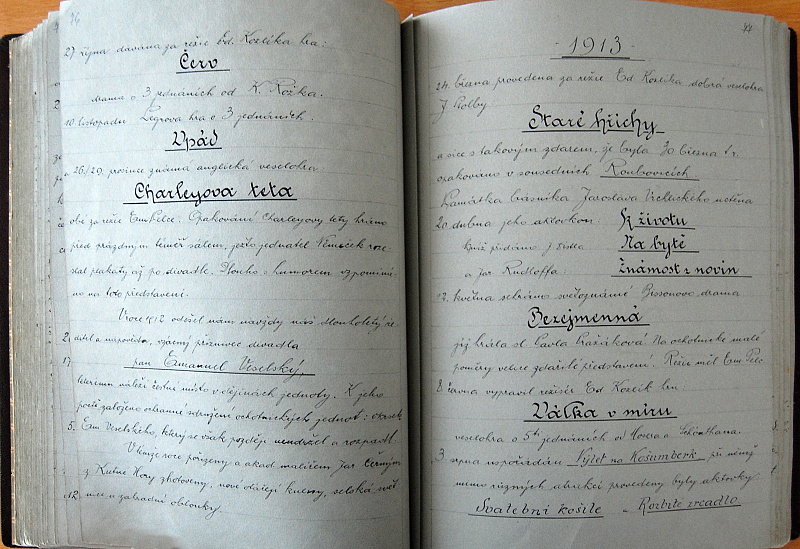 76
27. října dávána za režie Ed. Kozlíka hra:
Červ
drama o 3 jednáních od K. Rožka.
10. listopadu Legrova hra o 3 jednáních.
Vpád
a 26./29. prosince známá anglická veselohra
Charleyova teta
obě za režie Em. Pelce. Opakování Charleyovy tety hráno
před prázdným téměř sálem, ježto jednatel Němeček roze-
slal plakáty až po divadle. Dlouho s humorem vzpomíná-
no na toto představení.
V roce 1912 odešel nám navždy náš dlouholetý ře-
ditel a nápověda, vzácný příznivec divadla
pan Emanuel Veselský,
kterému náleží čestné místo v dějinách jednoty. K jeho
poctě založeno ochranné sdružení ochotnických jednot: okrsek
Em. Veselského, který se však později neudržel a rozpadl.
V témže roce pořízeny a akad. malířem Jar. Černým
z Kutné Hory zhotoveny, nové dátější kulisy, selská svět-
nice a zahradní oblouky.
77
- 1913 -
24. března provedena za režie Ed. Kozlíka dobrá veselohra
J. Golby
Staré hříchy
a sice s takovým zdarem, že byla 30. března t. r.
opakováno v sousedních Roubovicích
Památka básníka Jaroslava Vrchlického uctěna
20. dubna jeho aktovkou: K životu
kníž přidáno J. Štolba Na bytě
a Jar. Rudloffa: Známost z novin
12. května sehráno světoznámé Bissonovo drama
Bezejmenná
již hrála sl. Pavla Pražáková. Na ochotnické malé
poměry velice zdařilé představení. Režii měl Em. Pelc.
8. června vypravil režisér Ed. Kozlík hru:
Válka v míru
veselohra o 5ti jednáních od Mosera a Schönthana.
3. srpna uspořádán Výlet na Košumberk při němž
mimo různých atrakcí provedeny byly aktovky
Svatební košile a Rozbité zrcadlo